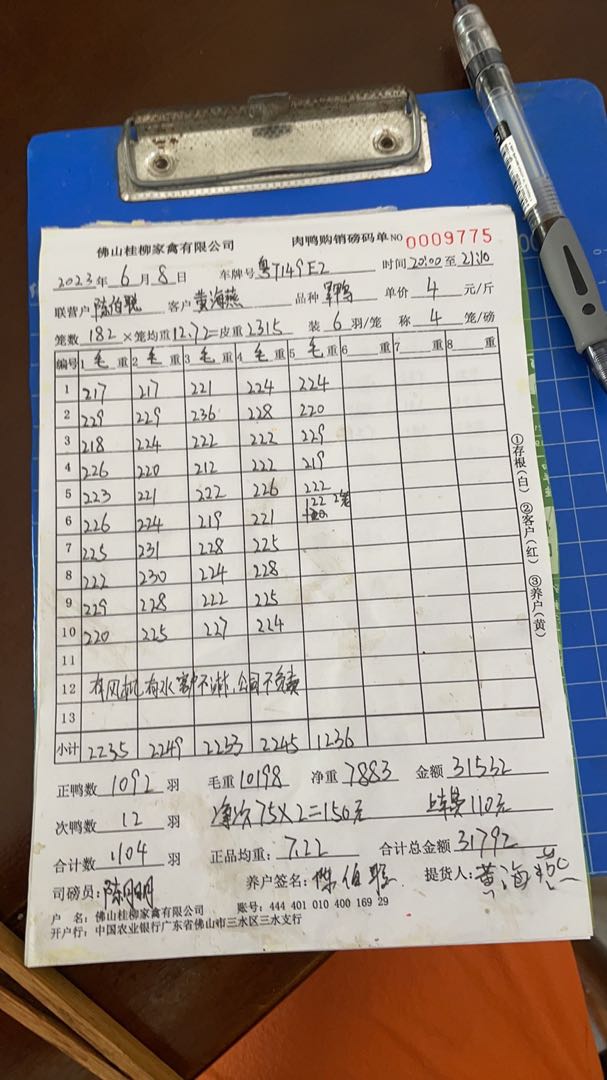 佛山桂柳家禽有限公司 肉鸭购销磅码单 NO 0009775
2023年 6月 8日 车牌号 粤T149E2 时间 20:00 至 21:10
联营户 陈伯聪 客户 黄海燕 品种 单价 4 元/斤
笼数 182 ×笼均重 12.72 =皮重 2315 装 6 羽/笼 称 4 笼/磅
编号 1 毛 重 2 毛 重 3 毛 重 4 毛 重 5 毛 重 6 重 7 重 8 重
1 217 217 221 224 224
2 229 229 236 228 220
3 218 224 222 222 229
4 226 220 212 222 219
5 223 221 222 226 222
6 226 224 219 221 122 2笼
7 225 231 228 225
8 222 230 224 228
9 229 228 222 225
10 220 225 227 224
11
12 有风机,有水,客户不淋,公司不负责
13
小计 2235 2249 2233 2245 1236
正鸭数 1092 羽 毛重 10198 净重 7883 金额 31532
次鸭数 12 羽 75×2=150元 110元
合计数 1104 羽 正品均重: 7.22 合计总金额 31792
司磅员: 陈明明 养户签名: 陈伯聪 提货人: 黄海燕
户 名: 佛山桂柳家禽有限公司 账号: 444 401 010 400 169 29
开户行: 中国农业银行广东省佛山市三水区三水支行
①存根(白) ②客户(红) ③养户(黄)